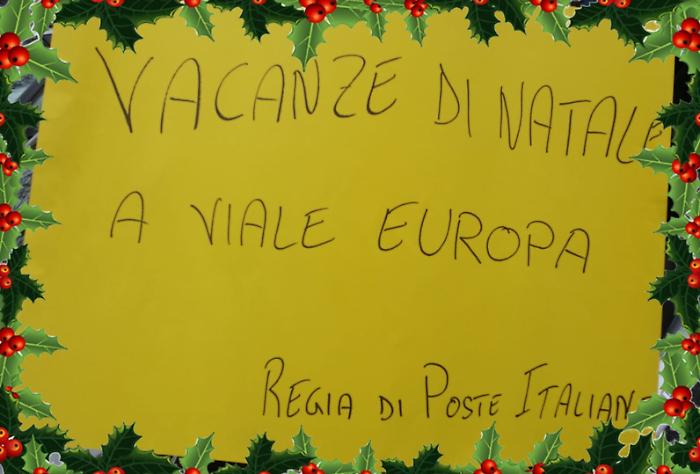 VACANZE DI NATALE
A VIALE EUROPA
REGIA DI POSTE ITALIAN